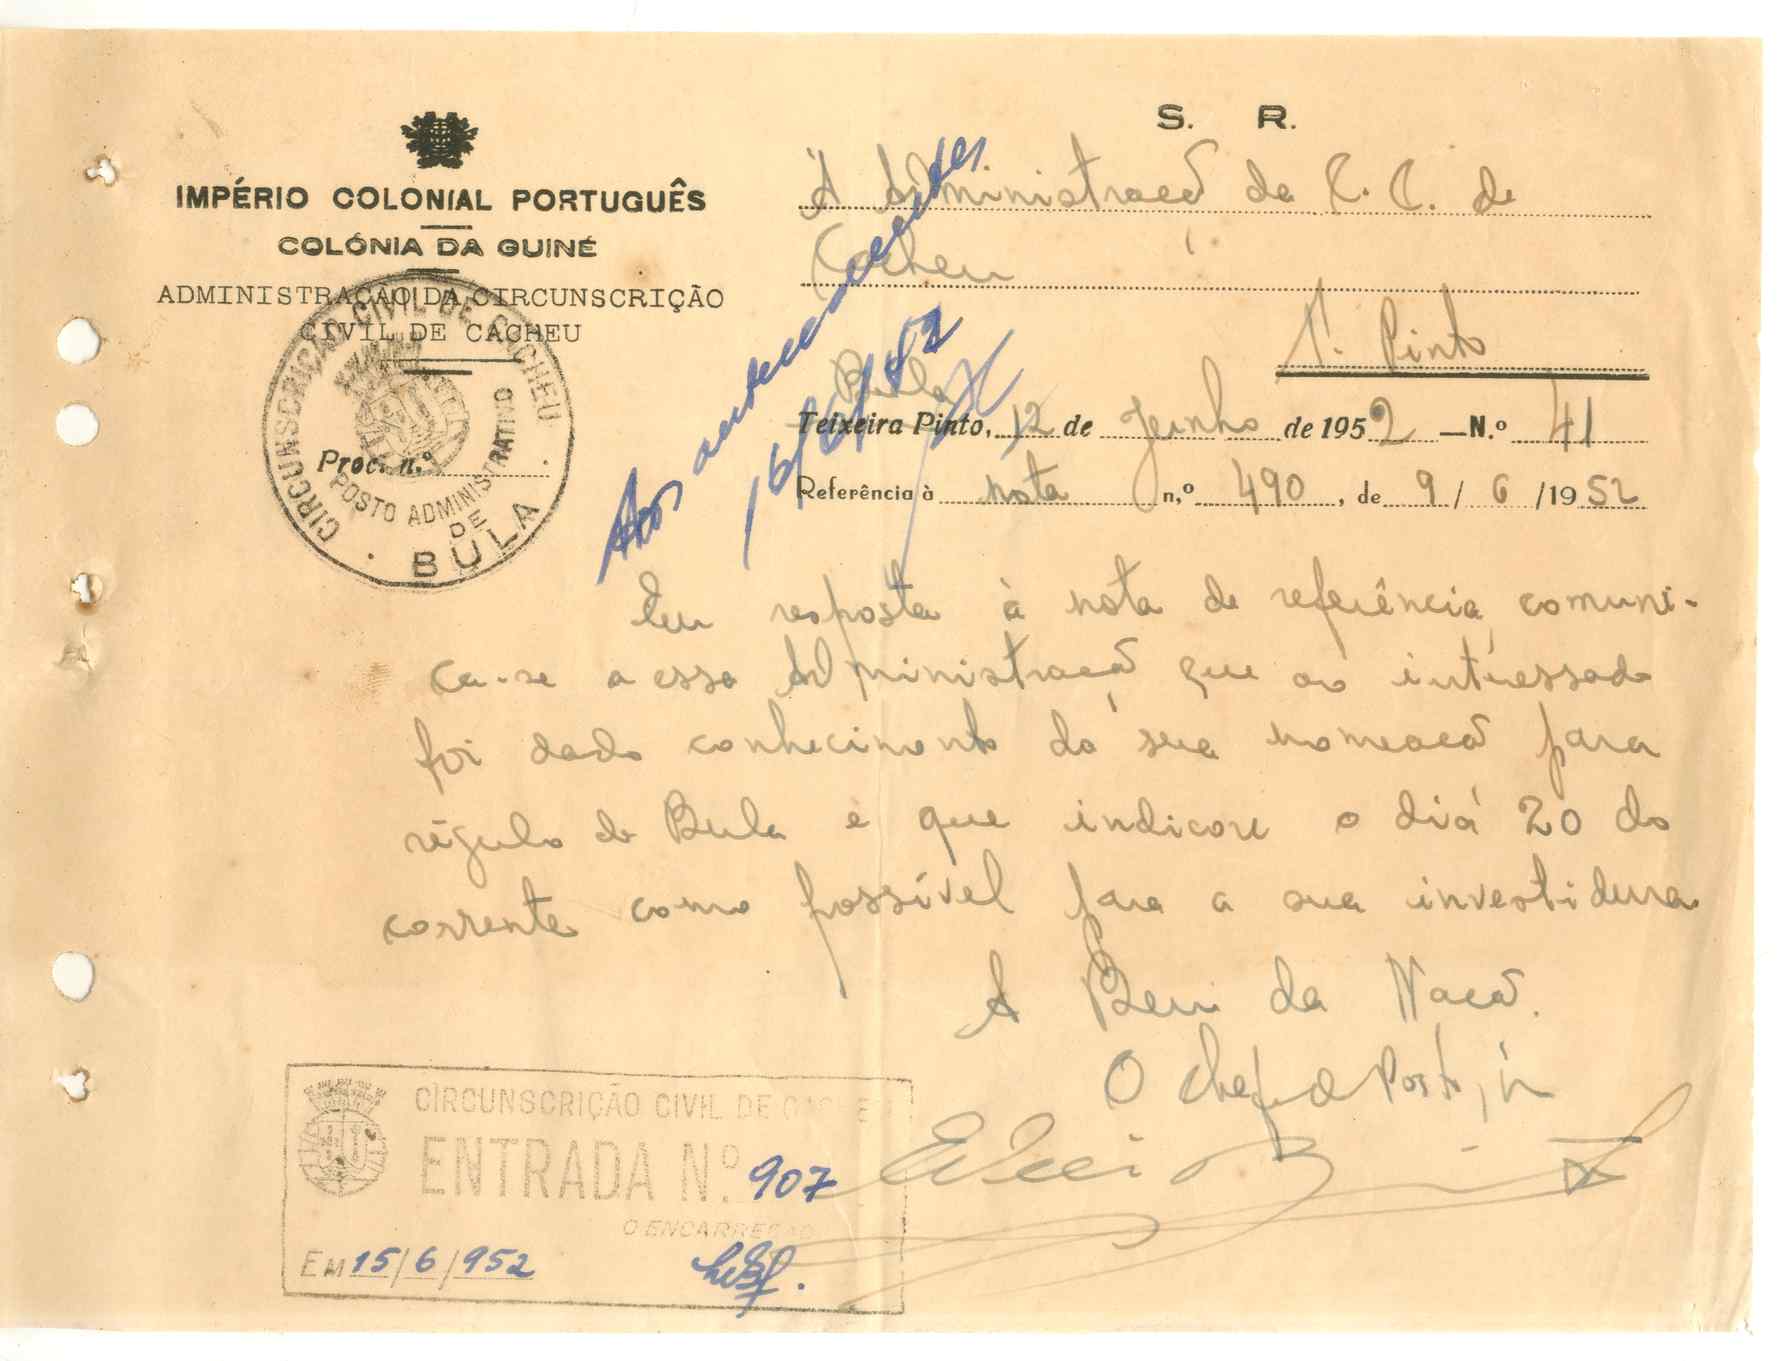 S. R.
IMPÉRIO COLONIAL PORTUGUÊS
COLÓNIA DA GUINÉ
ADMINISTRAÇÃO DA CIRCUNSCRIÇÃO
CIVIL DE CACHEU
CIRCUNSCRIÇÃO CIVIL DE CACHEU
POSTO ADMINISTRATIVO
DE
BULA
Proc. n.º
À Administração da C. C. de
Cacheu
T. Pinto
Bula
Teixeira Pinto, 12 de Junho de 1952 —N.º 41
Referência à nota n,º 490, de 9/6/1952
Aos antecedentes
16/6/52
Em resposta à nota de referência, comuni-
ca-se a essa Administração que ao interessado
foi dado conhecimento da sua nomeação para
régulo de Bula e que indicou o dia 20 do
corrente como possível para a sua investidura
A Bem da Nação.
O Chefe de Posto,
CIRCUNSCRIÇÃO CIVIL DE CACHEU
ENTRADA N.º 907
O ENCARREGADO
EM 15/6/952